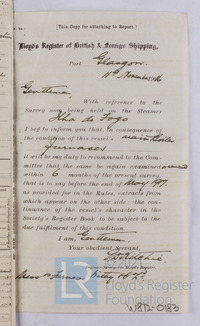 [This Copy for attaching to Report.]
Lloyd's Register of British & Foreign Shipping,
Port Glasgow.
11th November
Gentlemen,
With reference to the
Survey now being held on the Steamer
Ilha do Fogo
I beg to inform you that in consequence of
the condition of this vessel's main boiler
furnaces
it will be my duty to recommend to the Com-
mittee that the same be again examined
within 6 months of the present survey,
that is to say before the end of May
as provided for in the Rules, extracts from
which appear on the other side, the con-
tinuance of the vessel's character in the
Society's Register Book to be subject to the
due fulfilment of this condition.
I am, Gentlemen
Your obedient Servant,
Surveyor to Lloyd's Register.
W812-0183